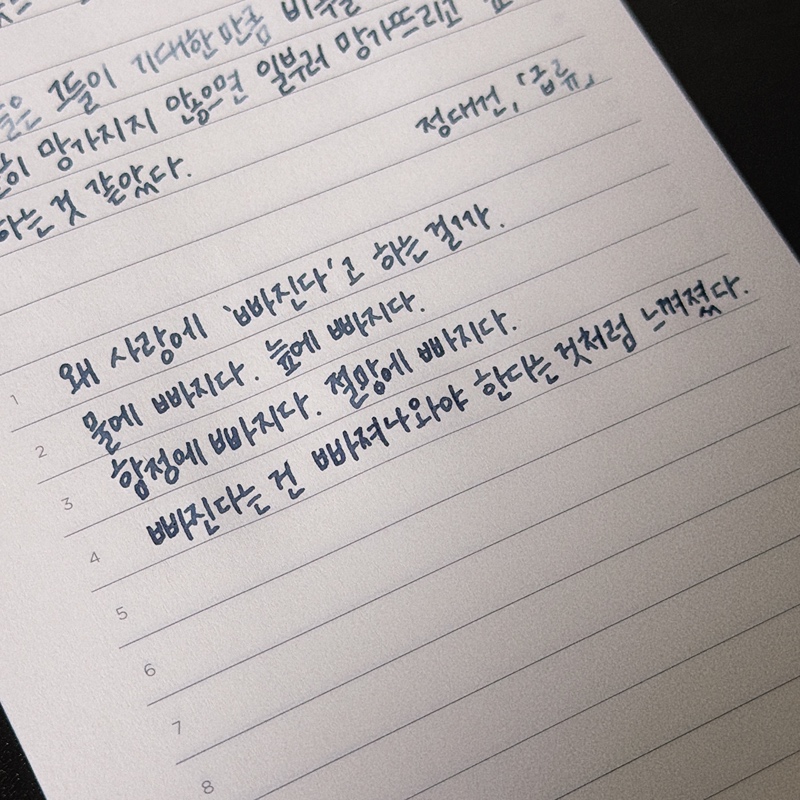 그들이 기대한 만큼
망가지지 않으면 일부러 망가뜨리고
하는 것 같았다.
정대건, 「급류」
왜 사랑에 '빠진다'고 하는 걸까.
물에 빠지다. 늪에 빠지다.
함정에 빠지다. 절망에 빠지다.
빠진다는 건 빠져나와야 한다는 것처럼 느껴졌다.
1
2
3
4
5
6
7
8